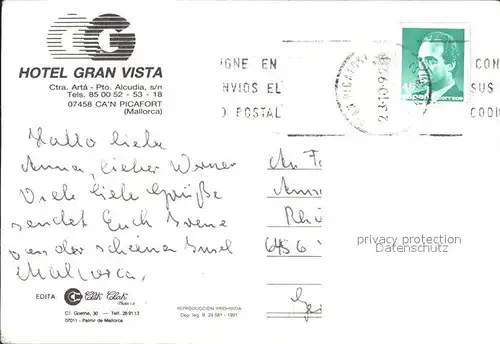 HOTEL GRAN VISTA
Ctra. Artá - Pto. Alcudia, s/n
Tels. 85 00 52 - 53 - 18
07458 CA'N PICAFORT
(Mallorca)
IGNE EN CON
NVIOS EL SUS
O POSTAL CODIG
correos
Hallo liebe
Anna, lieber Werner
Viele liebe Grüße
sendet Euch Irene
von der schönen Insel
Mallorca,
An Fa
Rhi
6456
privacy protection
Datenschutz
EDITA Clik Clak
C/. Goethe, 30 — Telf. 28 91 13
07011 - Palma de Mallorca
REPRODUCCION PROHIBIDA
Dep. leg. B 24 081 - 1991